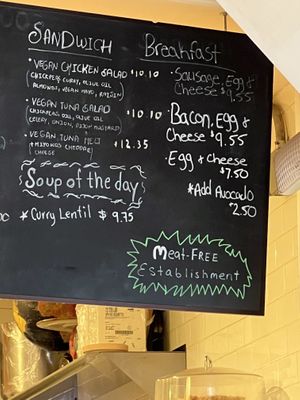 SANDWICH
• VEGAN CHICKEN SALAD $10.10
(CHICKPEAS, CURRY, OLIVE OIL
ALMONDS, VEGAN MAYO, RAISIN)
• VEGAN TUNA SALAD 10.10
(CHICKPEAS, OLIVE OIL,
CELERY, ONION, DIJON MUSTARD)
• VEGAN TUNA MELT $12.35
CHEDDAR
CHEESE
Soup of the day
* Curry Lentil $ 9.75
Breakfast
• Sausage, Egg &
Cheese $9.55
• Bacon, Egg &
Cheese $9.55
• Egg & Cheese
$7.50
* Add Avocado
$2.50
Meat-FREE
Establishment